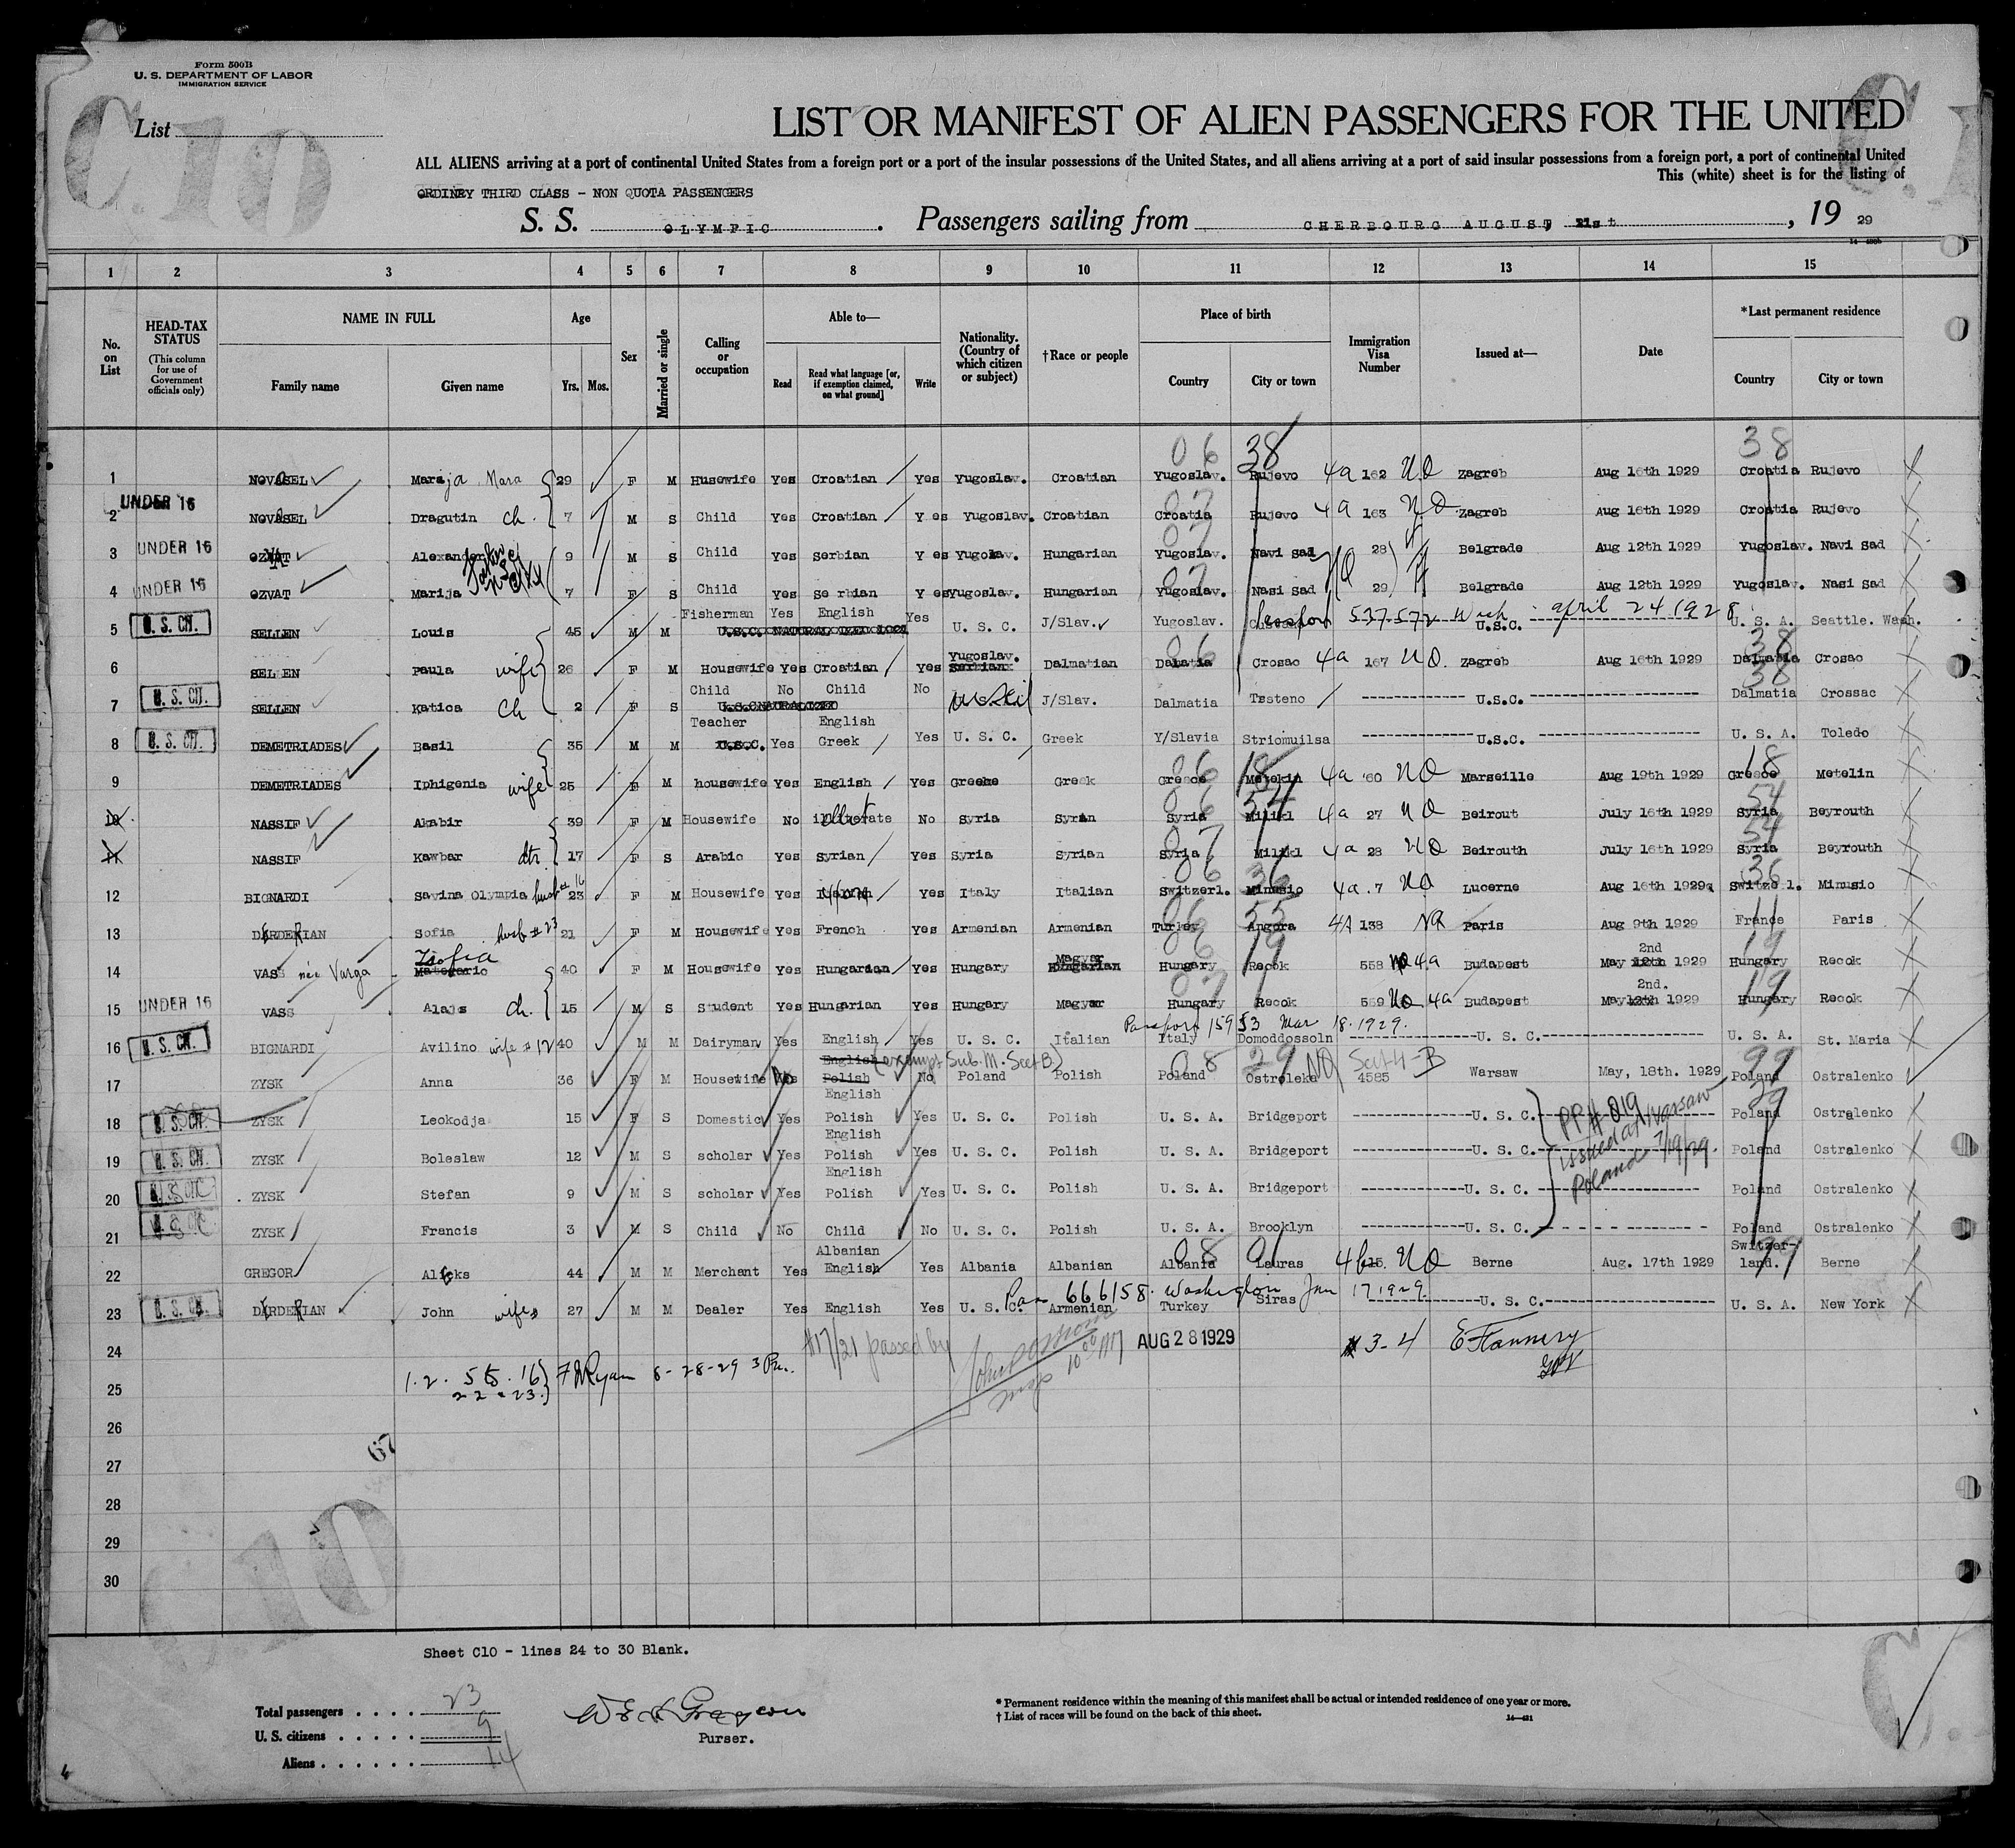 Form 500B
U. S. DEPARTMENT OF LABOR
IMMIGRATION SERVICE
C.10
List
LIST OR MANIFEST OF ALIEN PASSENGERS FOR THE UNITED
ALL ALIENS arriving at a port of continental United States from a foreign port or a port of the insular possessions of the United States, and all aliens arriving at a port of said insular possessions from a foreign port, a port of continental United
This (white) sheet is for the listing of
ORDINRY THIRD CLASS - NON QUOTA PASSENGERS
S. S. OLYMPIC. Passengers sailing from CHERBOURG AUGUST, 21st, 19 29
1 2 3 4 5 6 7 8 9 10 11 12 13 14 15
No. on List
HEAD-TAX STATUS (This column for use of Government officials only)
NAME IN FULL Family name Given name
Age Yrs. Mos.
Sex
Married or single
Calling or occupation
Able to— Read Read what language [or, if exemption claimed, on what ground] Write
Nationality. (Country of which citizen or subject)
†Race or people
Place of birth Country City or town
Immigration Visa Number
Issued at—
Date
*Last permanent residence Country City or town
06 38 38
1 NOVASEL Marija Mara 29 F M Husewife Yes Croatian Yes Yugoslav. Croatian Yugoslav. Rujevo 4a 162 NQ Zagreb Aug 16th 1929 Croatia Rujevo
UNDER 16
2 NOVASEL Dragutin ch. 7 M S Child Yes Croatian Yes Yugoslav. Croatian Croatia Rujevo 4a 163 NQ Zagreb Aug 16th 1929 Croatia Rujevo
UNDER 16 3 OZVAT Alexander 9 M S Child Yes Serbian Yes Yugoslav. Hungarian Yugoslav. Navi Sad 28 Belgrade Aug 12th 1929 Yugoslav. Navi Sad
UNDER 16 4 OZVAT Marija 7 F S Child Yes Serbian Yes Yugoslav. Hungarian Yugoslav. Nasi Sad NQ 29 Belgrade Aug 12th 1929 Yugoslav. Nasi Sad
Passport 537572 Wash. april 24 1928
U. S. CIT. 5 SELLEN Louis 45 M M Fisherman Yes English Yes U.S.C. NATURALIZED U. S. C. J/Slav. Yugoslav. U.S.C. U. S. A. Seattle. Wash.
6 SELLEN Paula wife 26 F M Housewife Yes Croatian Yes Yugoslav. Serbian Dalmatian Dalmatia Crosao 4a 167 NQ. Zagreb Aug 16th 1929 Dalmatia Crosao
U. S. CIT. 7 SELLEN Katica ch 2 F S Child No Child No J/Slav. Dalmatia Tssteno U.S.C. Dalmatia Crossac
U. S. CIT. 8 DEMETRIADES Basil 35 M M Teacher U.S.C. Yes English Greek Yes U. S. C. Greek Y/Slavia Striomuilsa U.S.C. U. S. A. Toledo
9 DEMETRIADES Iphigenia wife 25 F M housewife Yes English Yes Greehe Greek Greece Metekin 4a 60 NQ Marseille Aug 19th 1929 Greece Metelin
10 NASSIF Akabir 39 F M Housewife No illiterate No Syria Syran Syria Milikl 4a 27 NQ Beirout July 16th 1929 Syria Beyrouth
11 NASSIF Kawbar dtr 17 F S Arabic Yes Syrian Yes Syria Syrian Syria Milikl 4a 28 NQ Beirouth July 16th 1929 Syria Beyrouth
12 BIGNARDI Savina Olympia husb # 16 23 F M Housewife Yes Yes Italy Italian Switzerl. Minusio 4a. 7 NQ Lucerne Aug 16th 1929 Switzerl. Minusio
13 DERDERIAN Sofia husb # 23 21 F M Housewife Yes French Yes Armenian Armenian Turkey Angora 4A 138 NQ Paris Aug 9th 1929 France Paris
14 VASS née Varga Zsofia 40 F M Housewife Yes Hungarian Yes Hungary Magyar Hungarian Hungary Recok 558 NQ 4a Budapest May 2nd 12th 1929 Hungary Recok
UNDER 16 15 VASS Alajs ch. 15 M S Student Yes Hungarian Yes Hungary Magyar Hungary Recok 559 NQ 4a Budapest May 2nd. 12th 1929 Hungary Recok
Passport 15953 Mar 18. 1929.
U. S. CIT. 16 BIGNARDI Avilino wife # 12 40 M M Dairyman Yes English Yes U. S. C. Italian Italy Domoddossoln U. S. C. U. S. A. St. Maria
17 ZYSK Anna 36 F M Housewife No English Polish (exempt Sub. M. Sect B) No Poland Polish Poland Ostroleka NQ Sect 4-B 4585 Warsaw May, 18th. 1929 Poland Ostralenko
U. S. CIT. 18 ZYSK Leokodja 15 F S Domestic Yes English Polish Yes U. S. C. Polish U. S. A. Bridgeport U. S. C. Poland Ostralenko
U. S. CIT. 19 ZYSK Boleslaw 12 M S scholar Yes English Polish Yes U. S. C. Polish U. S. A. Bridgeport U. S. C. Poland Ostralenko
U. S. CIT. 20 ZYSK Stefan 9 M S scholar Yes English Polish Yes U. S. C. Polish U. S. A. Bridgeport U. S. C. Poland Ostralenko
U. S. CIT. 21 ZYSK Francis 3 M S Child No Child No U. S. C. Polish U. S. A. Brooklyn U. S. C. Poland Ostralenko
PP#019 issued at Warsaw Poland 7/19/29.
22 GREGOR Aleks 44 M M Merchant Yes Albanian English Yes Albania Albanian Albania Lauras 4b 15 NQ Berne Aug. 17th 1929 Switzer-land. Berne
Pas 666158. Washington Jan 17 1929
U. S. CIT. 23 DERDERIAN John wife 27 M M Dealer Yes English Yes U. S. C. Armenian Turkey Siras U. S. C. U. S. A. New York
24 #17/21 passed by AUG 28 1929 #3-4 E Flannery
25 1. 2. 5 16 22 23. Ryan 8-28-29
26
27
28
29
30
67
C.10
Sheet C10 - lines 24 to 30 Blank.
Total passengers . . . . 23
U. S. citizens . . . . . 9
Aliens . . . . . . 14
Purser.
* Permanent residence within the meaning of this manifest shall be actual or intended residence of one year or more.
† List of races will be found on the back of this sheet.